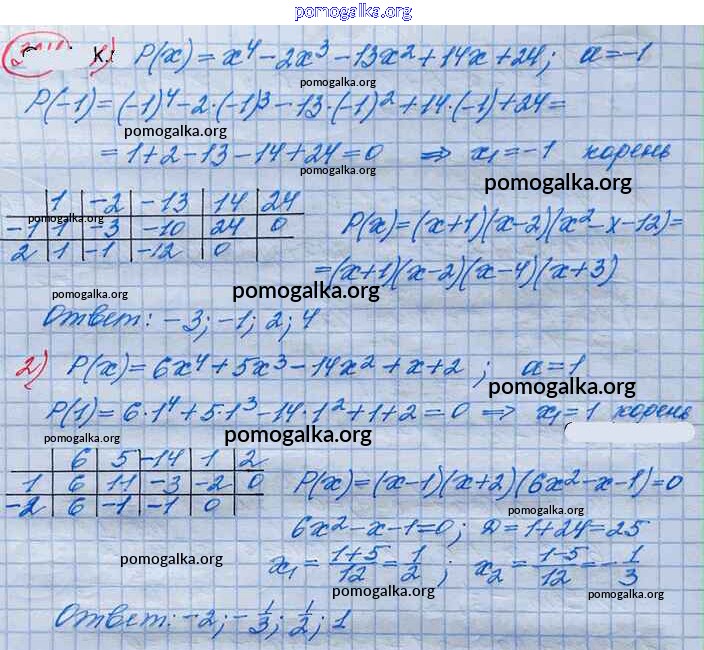 pomogalka.org
К. 1) P(x) = x⁴ - 2x³ - 13x² + 14x + 24; a = -1
pomogalka.org
P(-1) = (-1)⁴ - 2·(-1)³ - 13·(-1)² + 14·(-1) + 24 =
pomogalka.org
= 1 + 2 - 13 - 14 + 24 = 0 ⇒ x₁ = -1 корень
pomogalka.org
pomogalka.org
| | 1 | -2 | -13 | 14 | 24 |
| -1 | 1 | -3 | -10 | 24 | 0 |
| 2 | 1 | -1 | -12 | 0 | |
pomogalka.org
P(x) = (x+1)(x-2)(x² - x - 12) =
pomogalka.org
= (x+1)(x-2)(x-4)(x+3)
pomogalka.org
pomogalka.org
Ответ: -3; -1; 2; 4
2) P(x) = 6x⁴ + 5x³ - 14x² + x + 2; a = 1
pomogalka.org
P(1) = 6·1⁴ + 5·1³ - 14·1² + 1 + 2 = 0 ⇒ x₁ = 1 корень
pomogalka.org
pomogalka.org
| | 6 | 5 | -14 | 1 | 2 |
| 1 | 6 | 11 | -3 | -2 | 0 |
| -2 | 6 | -1 | -1 | 0 | |
P(x) = (x-1)(x+2)(6x² - x - 1) = 0
pomogalka.org
6x² - x - 1 = 0; D = 1 + 24 = 25
pomogalka.org
x₁ = (1+5)/12 = 1/2; x₂ = (1-5)/12 = -1/3
pomogalka.org
pomogalka.org
Ответ: -2; -1/3; 1/2; 1